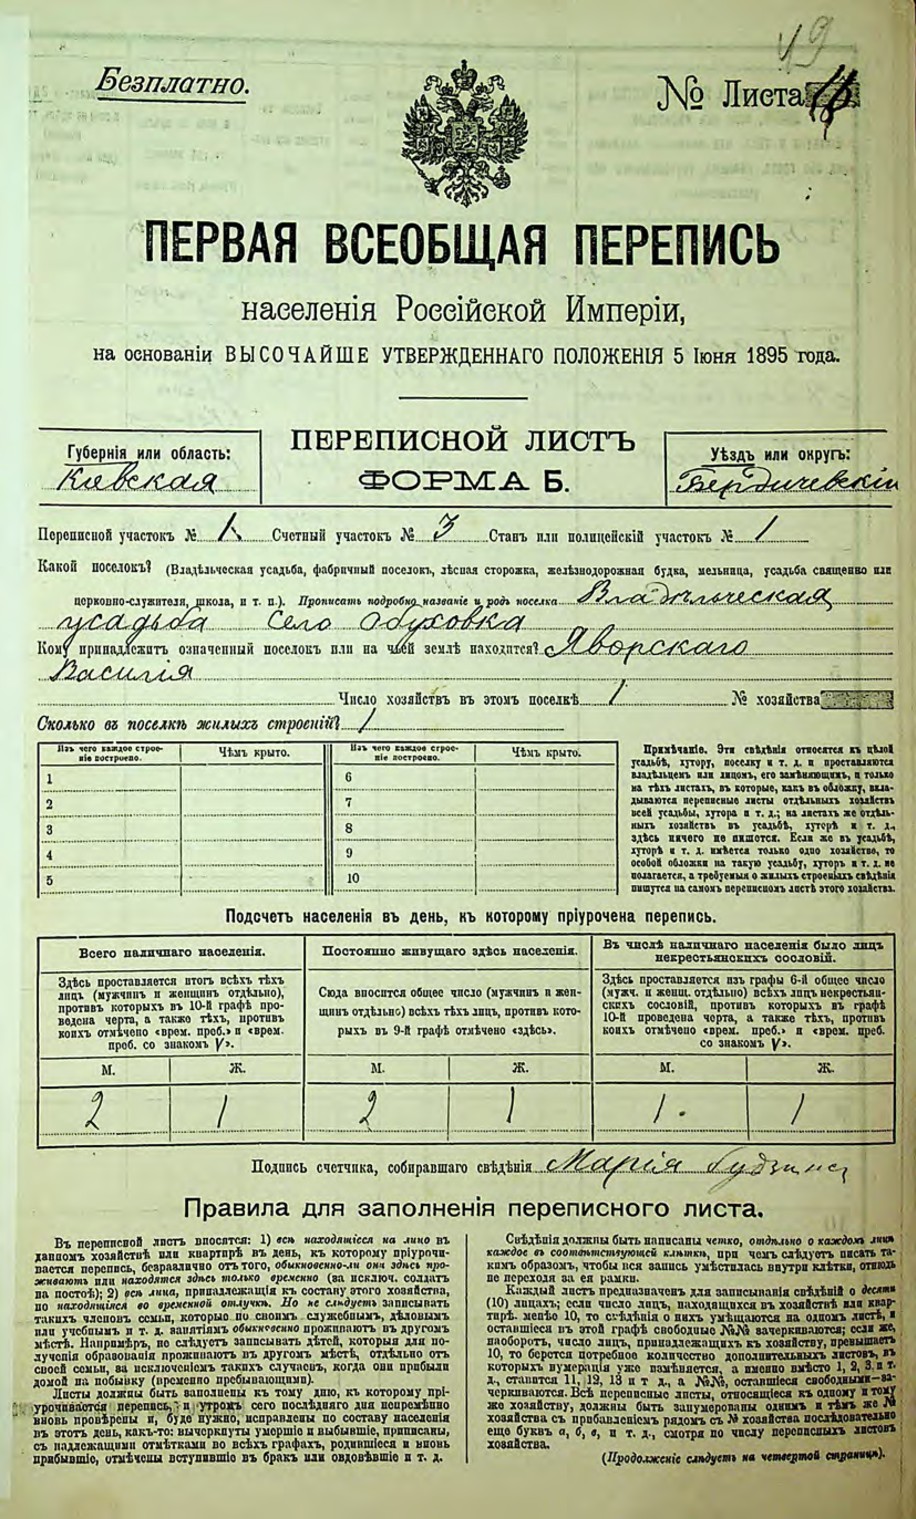 19
Безплатно.
№ Листа
ПЕРВАЯ ВСЕОБЩАЯ ПЕРЕПИСЬ
населенія Россійской Имперіи,
на основаніи ВЫСОЧАЙШЕ УТВЕРЖДЕННАГО ПОЛОЖЕНІЯ 5 Іюня 1895 года.
Губернія или область:
Кіевская
ПЕРЕПИСНОЙ ЛИСТЪ
ФОРМА Б.
Уѣздъ или округъ:
Бердичевскій
Переписной участокъ № 1 Счетный участокъ № 3 Станъ или полицейскій участокъ № 1
Какой поселокъ? (Владѣльческая усадьба, фабричный поселокъ, лѣсная сторожка, желѣзнодорожная будка, мельница, усадьба священно или
церковно-служителя, школа, и т. п.). Прописать подробно названіе и родъ поселка Владѣльческая
усадьба Село Обуховка
Кому принадлежитъ означенный поселокъ или на чьей землѣ находится? Яворскаго
Василія
Число хозяйствъ въ этомъ поселкѣ 1 № хозяйства
Сколько въ поселкѣ жилыхъ строеній? 1
Изъ чего каждое строеніе построено. Чѣмъ крыто. Изъ чего каждое строеніе построено. Чѣмъ крыто.
1 6
2 7
3 8
4 9
5 10
Примѣчаніе. Эти свѣдѣнія относятся къ цѣлой
усадьбѣ, хутору, поселку и т. д. и проставляются
владѣльцемъ или лицомъ, его замѣняющимъ, и только
на тѣхъ листахъ, въ которые, какъ въ обложку, вкла-
дываются переписные листы отдѣльныхъ хозяйствъ
всей усадьбы, хутора и т. д.; на листахъ же отдѣль-
ныхъ хозяйствъ въ усадьбѣ, хуторѣ и т. д.,
здѣсь ничего не пишется. Если же въ усадьбѣ,
хуторѣ и т. д. имѣется только одно хозяйство, то
особой обложки на такую усадьбу, хуторъ и т. д. не
полагается, а требуемыя о жилыхъ строеніяхъ свѣдѣнія
пишутся на самомъ переписномъ листѣ этого хозяйства.
Подсчетъ населенія въ день, къ которому пріурочена перепись.
Всего наличнаго населенія.
Здѣсь проставляется итогъ всѣхъ тѣхъ
лицъ (мужчинъ и женщинъ отдѣльно),
противъ которыхъ въ 10-й графѣ про-
ведена черта, а также тѣхъ, противъ
коихъ отмѣчено «врем. преб.» и «врем.
преб. со знакомъ V».
М. Ж.
2 1
Постоянно живущаго здѣсь населенія.
Сюда вносится общее число (мужчинъ и жен-
щинъ отдѣльно) всѣхъ тѣхъ лицъ, противъ кото-
рыхъ въ 9-й графѣ отмѣчено «здѣсь».
М. Ж.
2 1
Въ числѣ наличнаго населенія было лицъ
некрестьянскихъ сословій.
Здѣсь проставляется изъ графы 6-й общее число
(мужч. и женщ. отдѣльно) всѣхъ лицъ некрестьян-
скихъ сословій, противъ которыхъ въ графѣ
10-й проведена черта, а также тѣхъ, противъ
коихъ отмѣчено «врем. преб.» и «врем. преб.
со знакомъ V».
М. Ж.
1. 1
Подпись счетчика, собиравшаго свѣдѣнія Марія
Правила для заполненія переписного листа.
Въ переписной листъ вносятся: 1) всѣ находящіеся на лицо въ
данномъ хозяйствѣ или квартирѣ въ день, къ которому пріурочи-
вается перепись, безразлично отъ того, обыкновенно-ли они здѣсь про-
живаютъ или находятся здѣсь только временно (за исключ. солдатъ
на постоѣ); 2) всѣ лица, принадлежащія къ составу этого хозяйства,
но находящіяся во временной отлучкѣ. Но не слѣдуетъ записывать
такихъ членовъ семьи, которые по своимъ служебнымъ, дѣловымъ
или учебнымъ и т. д. занятіямъ обыкновенно проживаютъ въ другомъ
мѣстѣ. Напримѣръ, не слѣдуетъ записывать дѣтей, которыя для по-
лученія образованія проживаютъ въ другомъ мѣстѣ, отдѣльно отъ
своей семьи, за исключеніемъ такихъ случаевъ, когда они прибыли
домой на побывку (временно пребывающими).
Листы должны быть заполнены къ тому дню, къ которому прі-
урочивается перепись, и утромъ сего послѣдняго дня непремѣнно
вновь провѣрены и, буде нужно, исправлены по составу населенія
въ этотъ день, какъ-то: вычеркнуты умершіе и выбывшіе, приписаны,
съ надлежащими отмѣтками во всѣхъ графахъ, родившіеся и вновь
прибывшіе, отмѣчены вступившіе въ бракъ или овдовѣвшіе и т. д.
Свѣдѣнія должны быть написаны четко, отдѣльно о каждомъ лицѣ
каждое въ соотвѣтствующей клѣткѣ, при чемъ слѣдуетъ писать та-
кимъ образомъ, чтобы вся запись умѣстилась внутри клѣтки, отнюдь
не переходя за ея рамки.
Каждый листъ предназначенъ для записыванія свѣдѣній о десяти
(10) лицахъ; если число лицъ, находящихся въ хозяйствѣ или квар-
тирѣ, менѣе 10, то свѣдѣнія о нихъ умѣщаются на одномъ листѣ, и
оставшіеся въ этой графѣ свободные №№ вачеркиваются; если же,
наоборотъ, число лицъ, принадлежащихъ къ хозяйству, превышаетъ
10, то берется потребное количество дополнительныхъ листовъ, въ
которыхъ нумерація уже измѣняется, а именно вмѣсто 1, 2, 3 и т.
д., ставится 11, 12, 13 и т д., а №№, оставшіеся свободными—за-
черкиваются. Всѣ переписные листы, относящіеся къ одному и тому
же хозяйству, должны быть занумерованы однимъ и тѣмъ же №
хозяйства съ прибавленіемъ рядомъ съ № хозяйства послѣдовательно
еще буквъ а, б, в, и т. д., смотря по числу переписныхъ листовъ
хозяйства.
(Продолженіе слѣдуетъ на четвертой страницѣ).